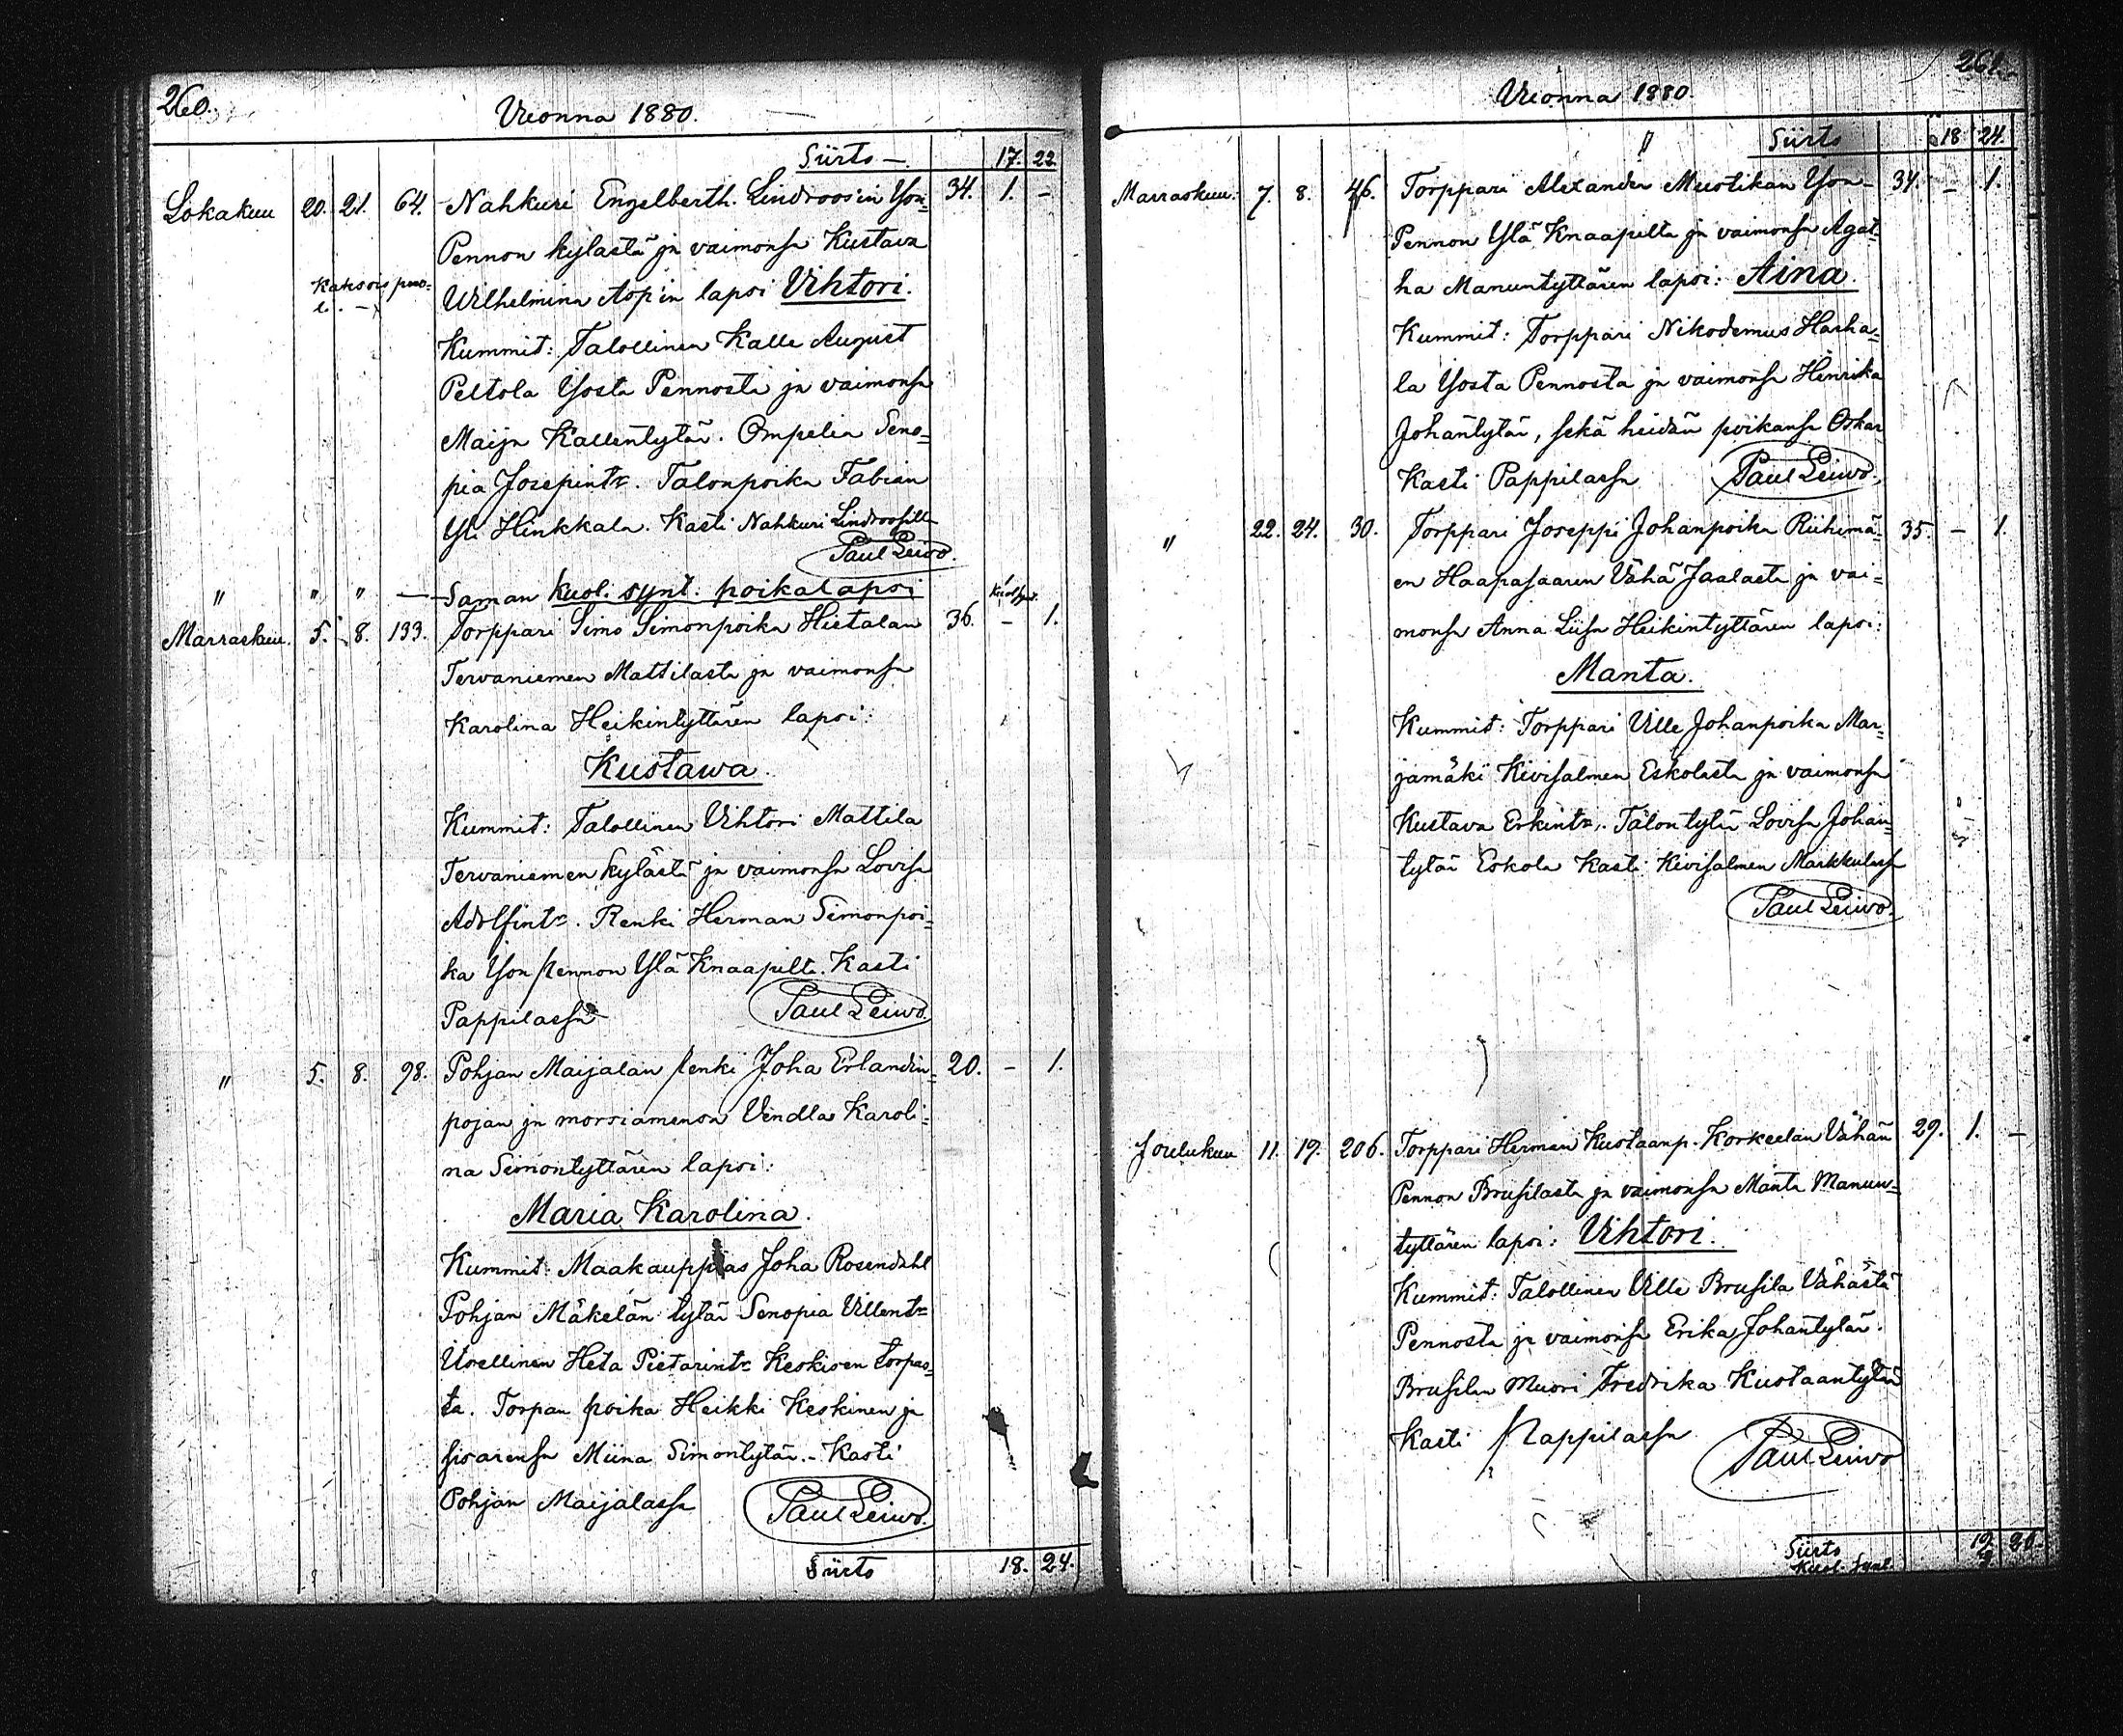 260.
Vuonna 1880.
Siirto – 17. 22
Lokakuu 20. 21. 64. Nahkuri Engelberth. Lindroosin Yson=
34. 1. –
Pennon kylästä ja vaimonsa Kustava
Kaksois puo=
li. –
Wilhelmina Aop'in lapsi Vihtori.
Kummit: Talollinen Kalle August
Peltola Ysosta Pennosta ja vaimonsa
Maija Kallentytär. Ompelia Seno=
pia Josepintr. Talonpoika Fabian
Yli Hinkkala. Kasti Nahkuri Lindroosilla
Paul Leiwo.
" " " — Saman kuol. synt. poikalapsi
Kuol. synt.
Marraskuu. 5. 8. 133. Torppari Simo Simonpoika Hietalan 36. – 1.
Tervaniemen Mattilasta ja vaimonsa
Karolina Heikintyttären lapsi:
Kustawa.
Kummit: Talollinen Vihtori Mattila
Tervaniemen kylästä ja vaimonsa Lovisa
Adolfintr. Renki Herman Simonpoi=
ka Yson pennon Ylä Knaapilta. Kasti
Pappilassa Paul Leiwo.
" 5. 8. 98. Pohjan Maijalan renki Joha Erlandin= 20. – 1.
pojan ja morsiamensa Vendla Karoli=
na Simontyttären lapsi:
Maria Karolina.
Kummit: Maakauppias Joha Rosendahl
Pohjan Mäkelän tytär Senopia Villentr
Itsellinen Heta Pietarintr Keskisen torpas=
ta. Torpan poika Heikki Keskinen ja
sisarensa Miina Simontytär. – Kasti
Pohjan Maijalassa Paul Leiwo.
Siirto 18. 24.
261.
Vuonna 1880.
Siirto 18 24.
Marraskuu: 7. 8. 46. Torppari Alexander Mustikan Yson= 34. – 1.
Pennon Ylä Knaapilta ja vaimonsa Agat=
ha Manuntyttären lapsi: Aina.
Kummit: Torppari Nikodemus Harha=
la Ysosta Pennosta ja vaimonsa Hinrika
Johantytär, sekä heidän poikansa Oskar
Kasti Pappilassa Paul Leiwo.
" 22. 24. 30. Torppari Joseppi Johanpoika Riihimä= 35. – 1.
en Haapasaaren Vähä Jaalasta ja vai=
monsa Anna Liisa Heikintyttären lapsi:
Manta.
Kummit: Torppari Ville Johanpoika Mar=
jamäki Kivisalmen Eskolasta ja vaimonsa
Kustava Erkintr. Talontytär Lovisa Johan=
tytär Eskola Kasti Kivisalmen Markkulassa
Paul Leiwo.
Joulukuu 11. 19. 206. Torppari Herman Kustaanp. Korkeelan Vähän 29. 1. –
Pennon Brusilasta ja vaimonsa Manta Manun=
tyttären lapsi: Vihtori.
Kummit: Talollinen Ville Brusila Vähästä
Pennosta ja vaimonsa Erika Johantytär.
Brusilan Muori Fredrika Kustaantytär
Kasti Pappilassa Paul Leiwo
Siirto 19 26.
Kuol. Synt.